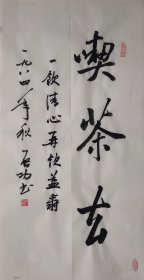 喫茶去
一飲清心再飲益壽
一九八四年秋 啟功書